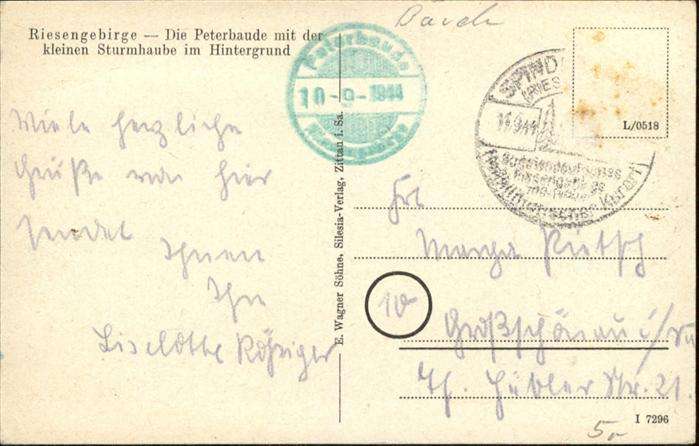 Riesengebirge — Die Peterbaude mit der
kleinen Sturmhaube im Hintergrund
Peterbaude
10-9-1944
Riesengebirge
SPIND
(RIES
11.9.44
L/0518
heilklimatischer Kurort
Viele herzliche
Grüße von hier
sendet Ihnen
Ihre
Liselotte Rößiger
E. Wagner Söhne, Silesia-Verlag, Zittau i. Sa.
Frl.
10
Großschönau i/Sa
Th. Hübler Str. 21.
I 7296
5,-